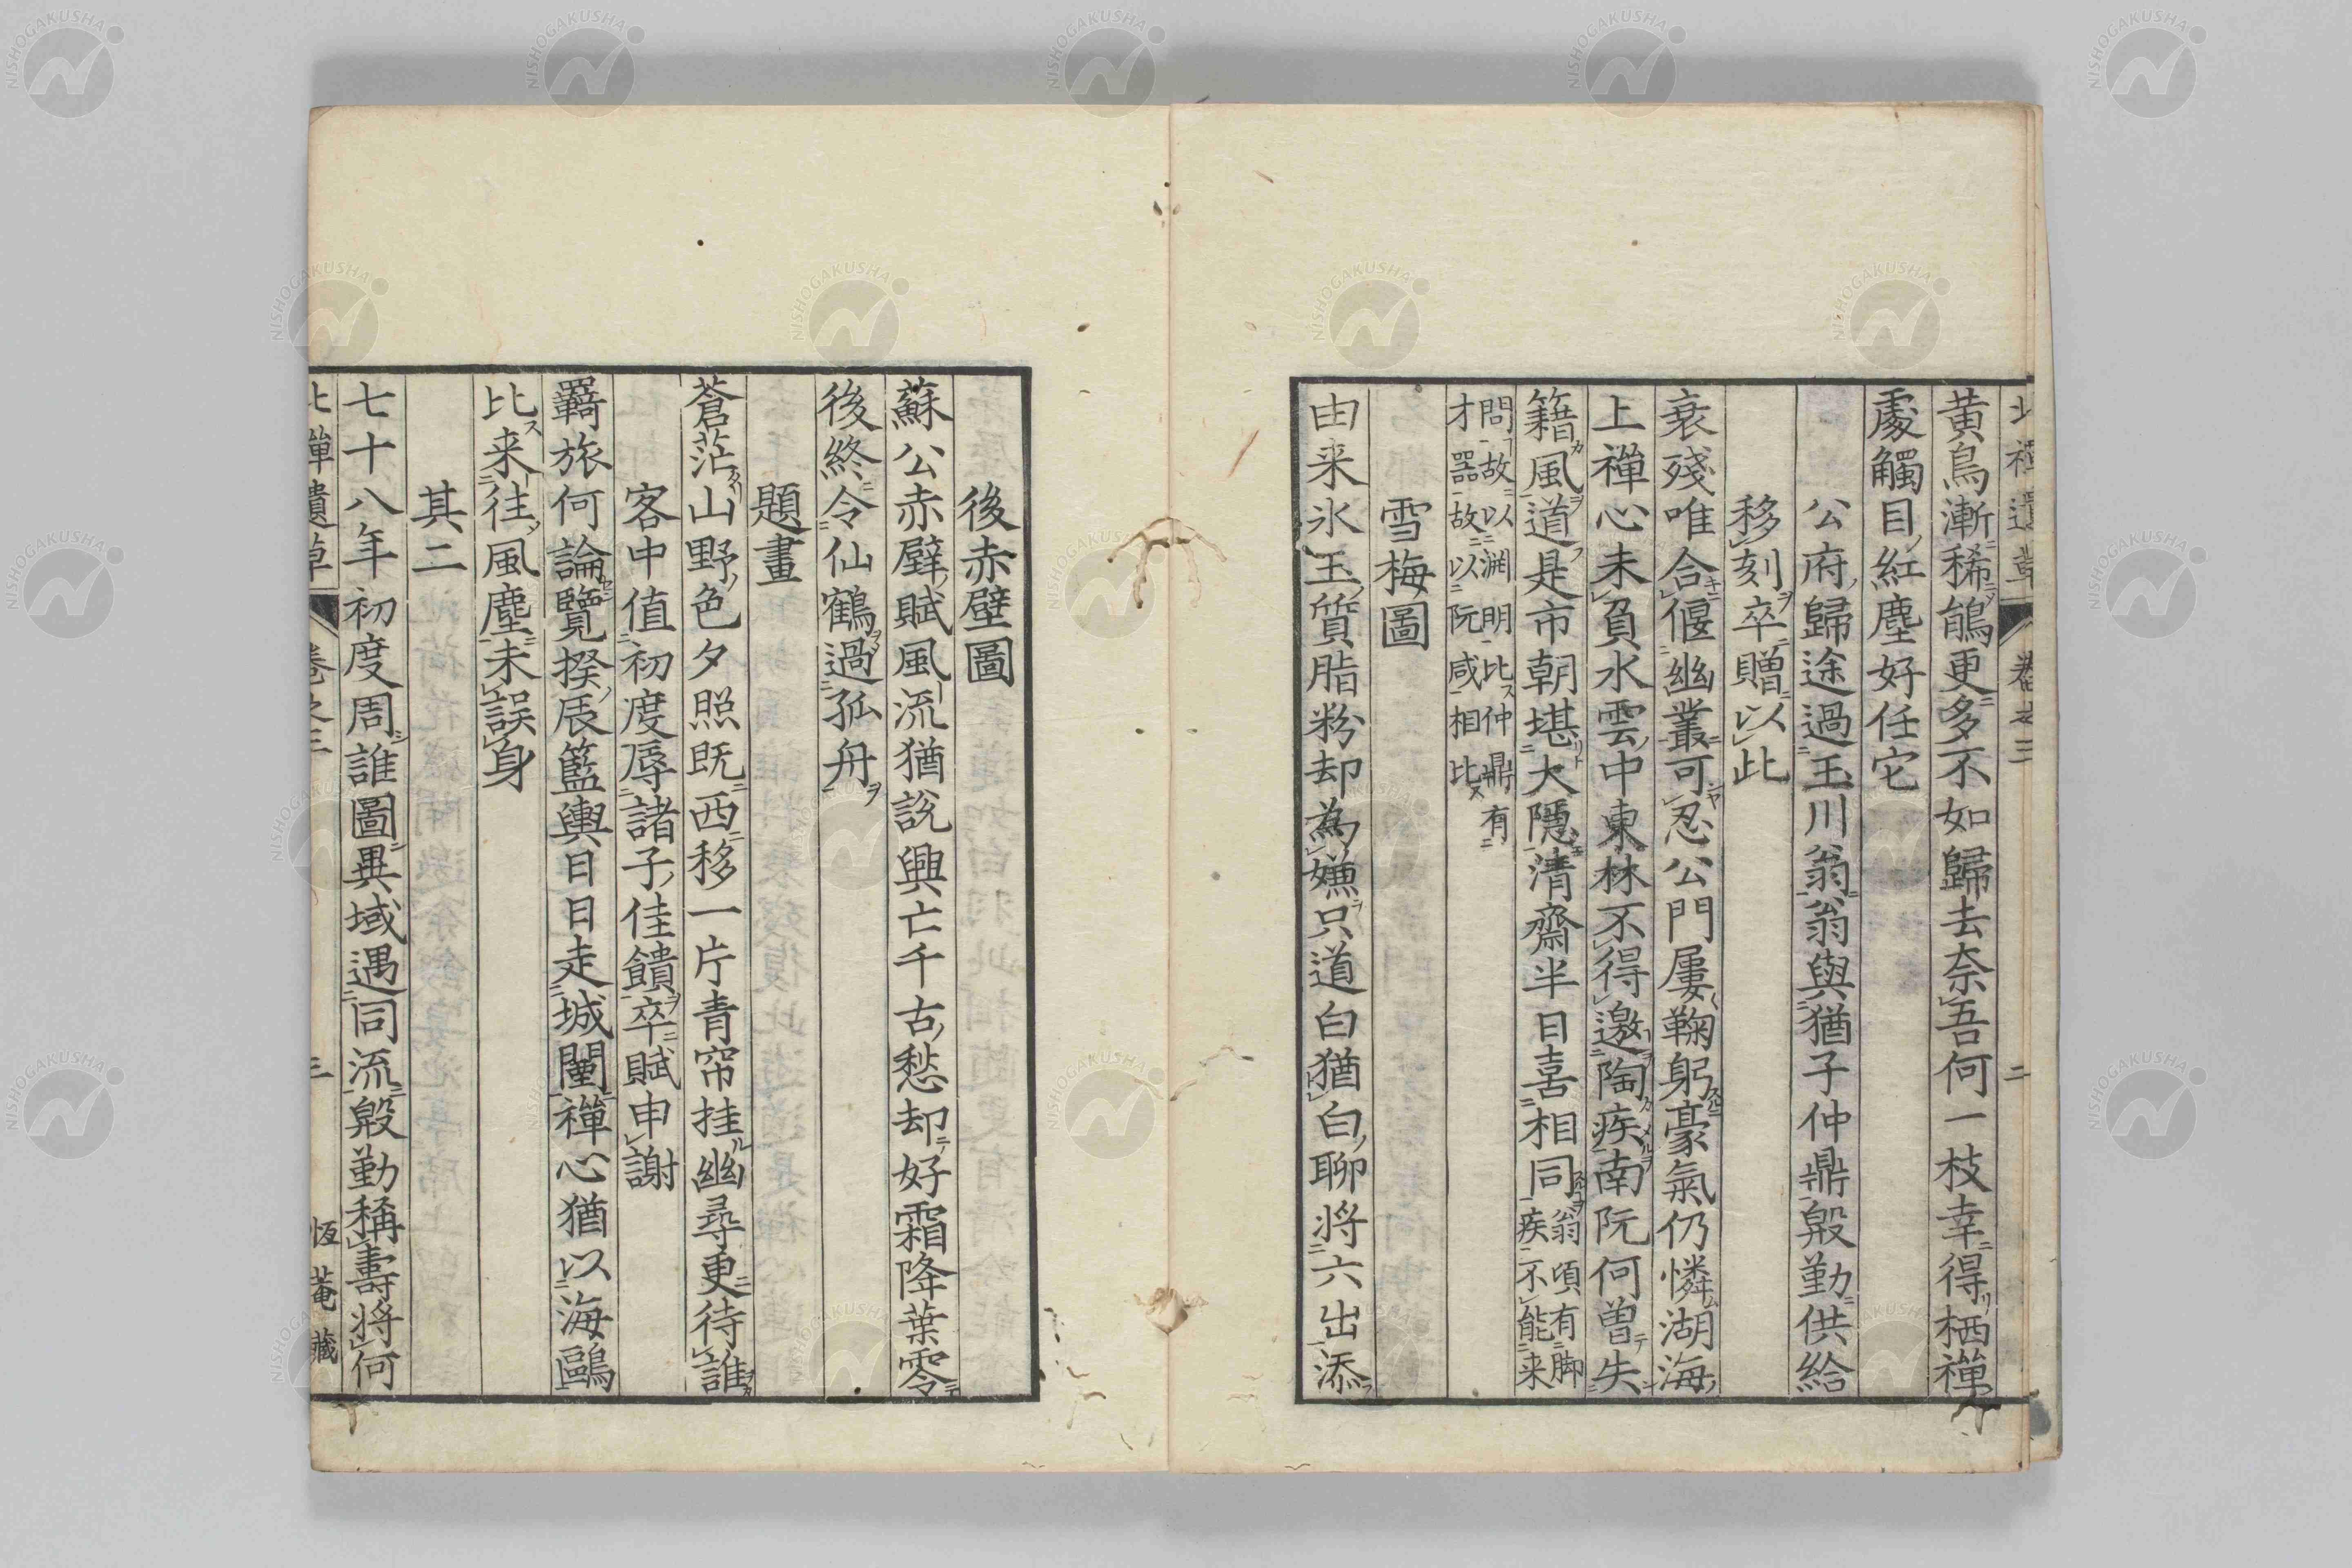 北禪遺草 卷之三 二
黄鳥漸稀鵃更多不如歸去奈吾何一枝幸得栖禪
處觸目紅塵好任它
公府歸途過玉川翁翁與猶子仲鼎殷勤供給
移刻卒贈以此
衰殘唯合偃幽叢可忍公門屢鞠躬豪氣仍憐湖海
上禪心未負水雲中東林不得邀陶疾南阮何曽失
籍風道是市朝堪大隱清齋半日喜相同翁頃有脚
疾不能来
問故以渊明比仲鼎有
才器故以阮咸相比
雪梅圖
由来氷玉質脂粉却為嫌只道白猶白聊将六出添
後赤壁圖
蘇公赤壁賦風流猶說興亡千古愁却好霜降葉零
後終令仙鶴過孤舟
題畫
蒼茫山野色夕照既西移一片青帘挂幽尋更待誰
客中值初度辱諸子佳饋卒賦申謝
羇旅何論覽揆辰籃輿日日走城闉禪心猶以海鷗
比来往風塵未誤身
其二
七十八年初度周誰圖異域遇同流殷勤稱壽將何
北禪遺草 卷之三 三 恆菴藏
NISHOGAKUSHA